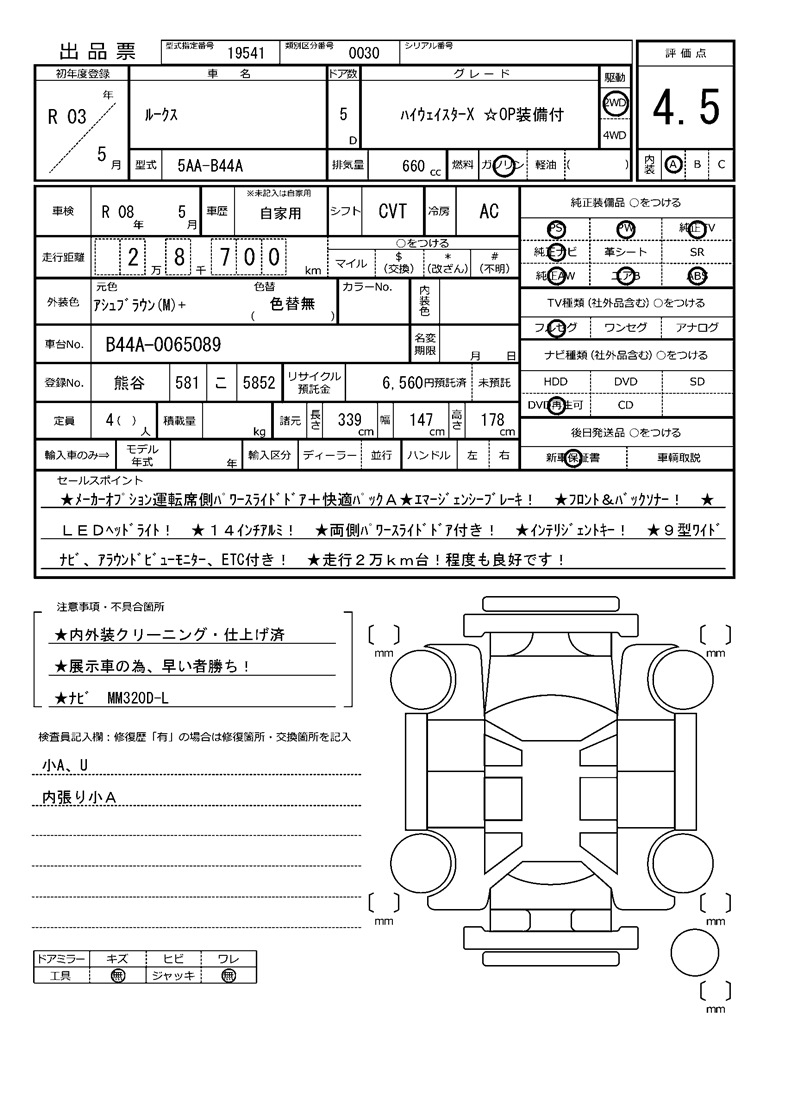 出品票 型式指定番号 19541 類別区分番号 0030 シリアル番号 評価点
初年度登録 車名 ドア数 グレード 駆動
R 03 年 5 月 ルークス 5 D ハイウェイスターX ☆OP装備付 2WD 4WD 4.5
型式 5AA-B44A 排気量 660 cc 燃料 ガソリン 軽油 ( ) 内装 A B C
車検 R 08 年 5 月 車歴 ※未記入は自家用 自家用 シフト CVT 冷房 AC 純正装備品 ○をつける
PS PW 純正TV
走行距離 2 万 8 千 7 0 0 km ○をつける マイル $(交換) *(改ざん) #(不明)
純正ナビ 革シート SR
純正AW エアB ABS
外装色 元色 アシュブラウン(M)+ 色替 ( 色替無 ) カラーNo. 内装色
TV種類(社外品含む) ○をつける
フルセグ ワンセグ アナログ
車台No. B44A-0065089 名変期限 月 日
ナビ種類(社外品含む) ○をつける
登録No. 熊谷 581 こ 5852 リサイクル預託金 6,560円預託済 未預託
HDD DVD SD
DVD再生可 CD
定員 4( ) 人 積載量 kg 諸元 長さ 339 cm 幅 147 cm 高さ 178 cm
後日発送品 ○をつける
輸入車のみ⇒ モデル年式 年 輸入区分 ディーラー 並行 ハンドル 左 右
新車保証書 車輌取説
セールスポイント
★メーカーオプション運転席側パワースライドドア＋快適パックA★エマージェンシーブレーキ！ ★フロント＆バックソナー！ ★
LEDヘッドライト！ ★14インチアルミ！ ★両側パワースライドドア付き！ ★インテリジェントキー！ ★9型ワイド
ナビ、アラウンドビューモニター、ETC付き！ ★走行2万km台！程度も良好です！
注意事項・不具合箇所
★内外装クリーニング・仕上げ済
★展示車の為、早い者勝ち！
★ナビ MM320D-L
検査員記入欄：修復歴「有」の場合は修復箇所・交換箇所を記入
小A、U
内張り小A
ドアミラー キズ ヒビ ワレ
工具 無 ジャッキ 無
mm mm
mm mm
mm